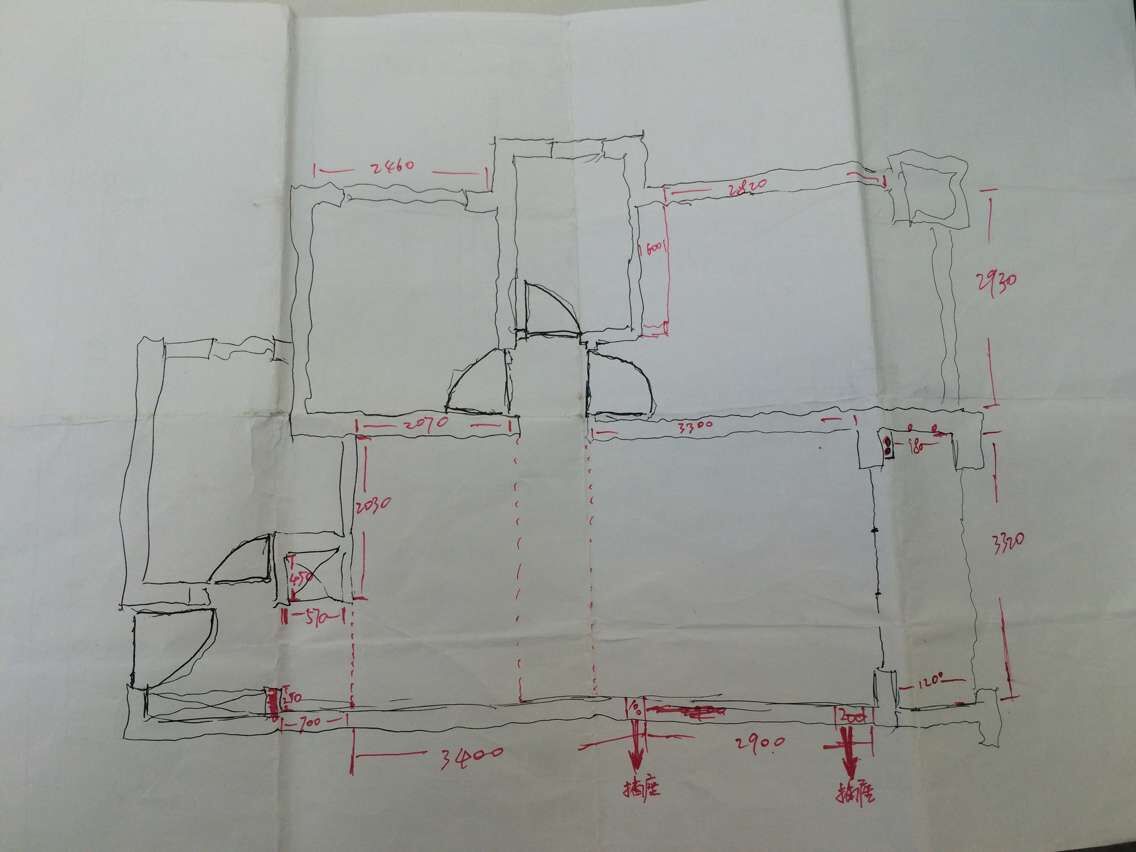 2460
2820
600
2930
2070
3300
980
2030
3320
450
570
250
700
1200
200
3400
2900
插座
插座